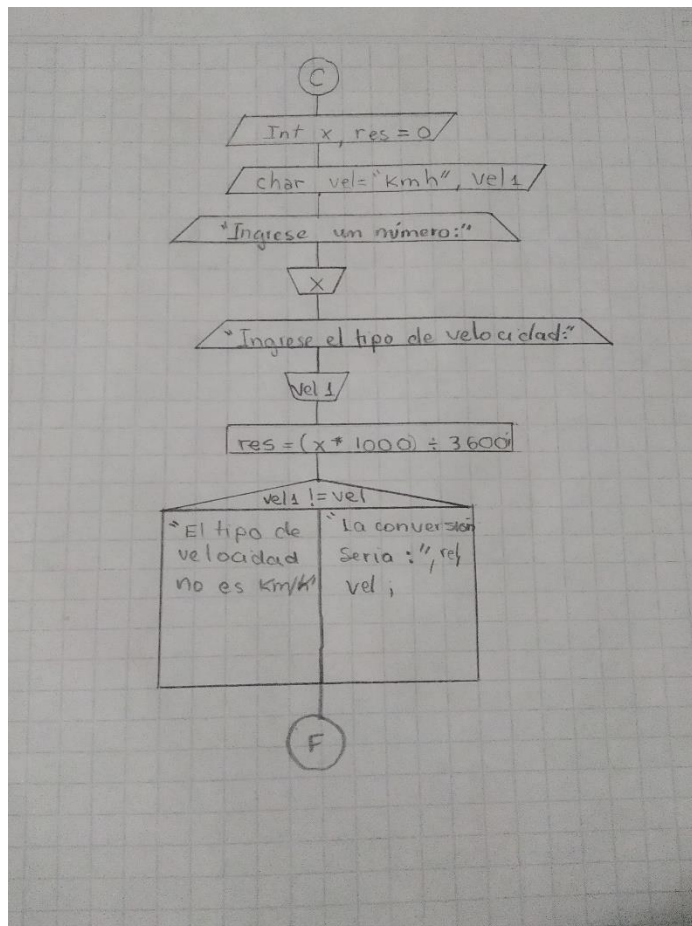 C
Int x, res = 0
char vel="kmh", vel1
"Ingrese un número:"
X
"Ingrese el tipo de velocidad:"
vel 1
res = (x * 1000) ÷ 3600
vel1 != vel
"El tipo de
velocidad
no es Km/h"
"La conversión
seria :", res,
vel ;
F